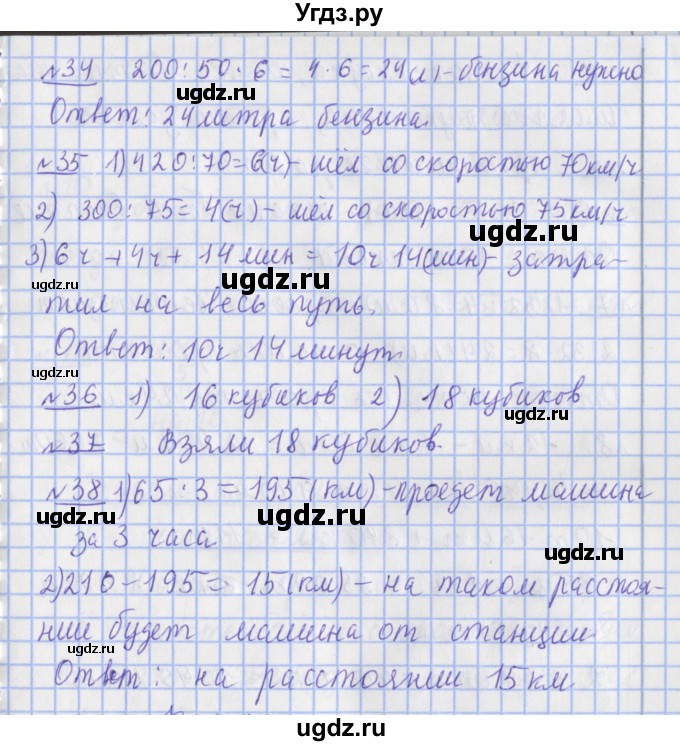 Угдз.ру
№34 200:50·6=4·6=24(л)-бензина нужно
ugdz.ru
Ответ: 24 литра бензина.
ugdz.ru
№35 1)420:70=6(ч)- шёл со скоростью 70км/ч
ugdz.ru
2) 300:75=4(ч)- шёл со скоростью 75км/ч
3)6ч+4ч+14мин=10ч 14(мин)- затра-
ugdz.ru
ugdz.ru
тил на весь путь.
Ответ: 10ч 14 минут.
ugdz.ru
№36 1) 16 кубиков 2) 18 кубиков
ugdz.ru
№37 Взяли 18 кубиков.
№38 1)65·3=195(км)-проедет машина
ugdz.ru ugdz.ru ugdz.ru
за 3 часа
2)210-195=15(км)- на таком расстоя-
нии будет машина от станции
ugdz.ru
Ответ: на расстоянии 15км
ugdz.ru
ugdz.ru